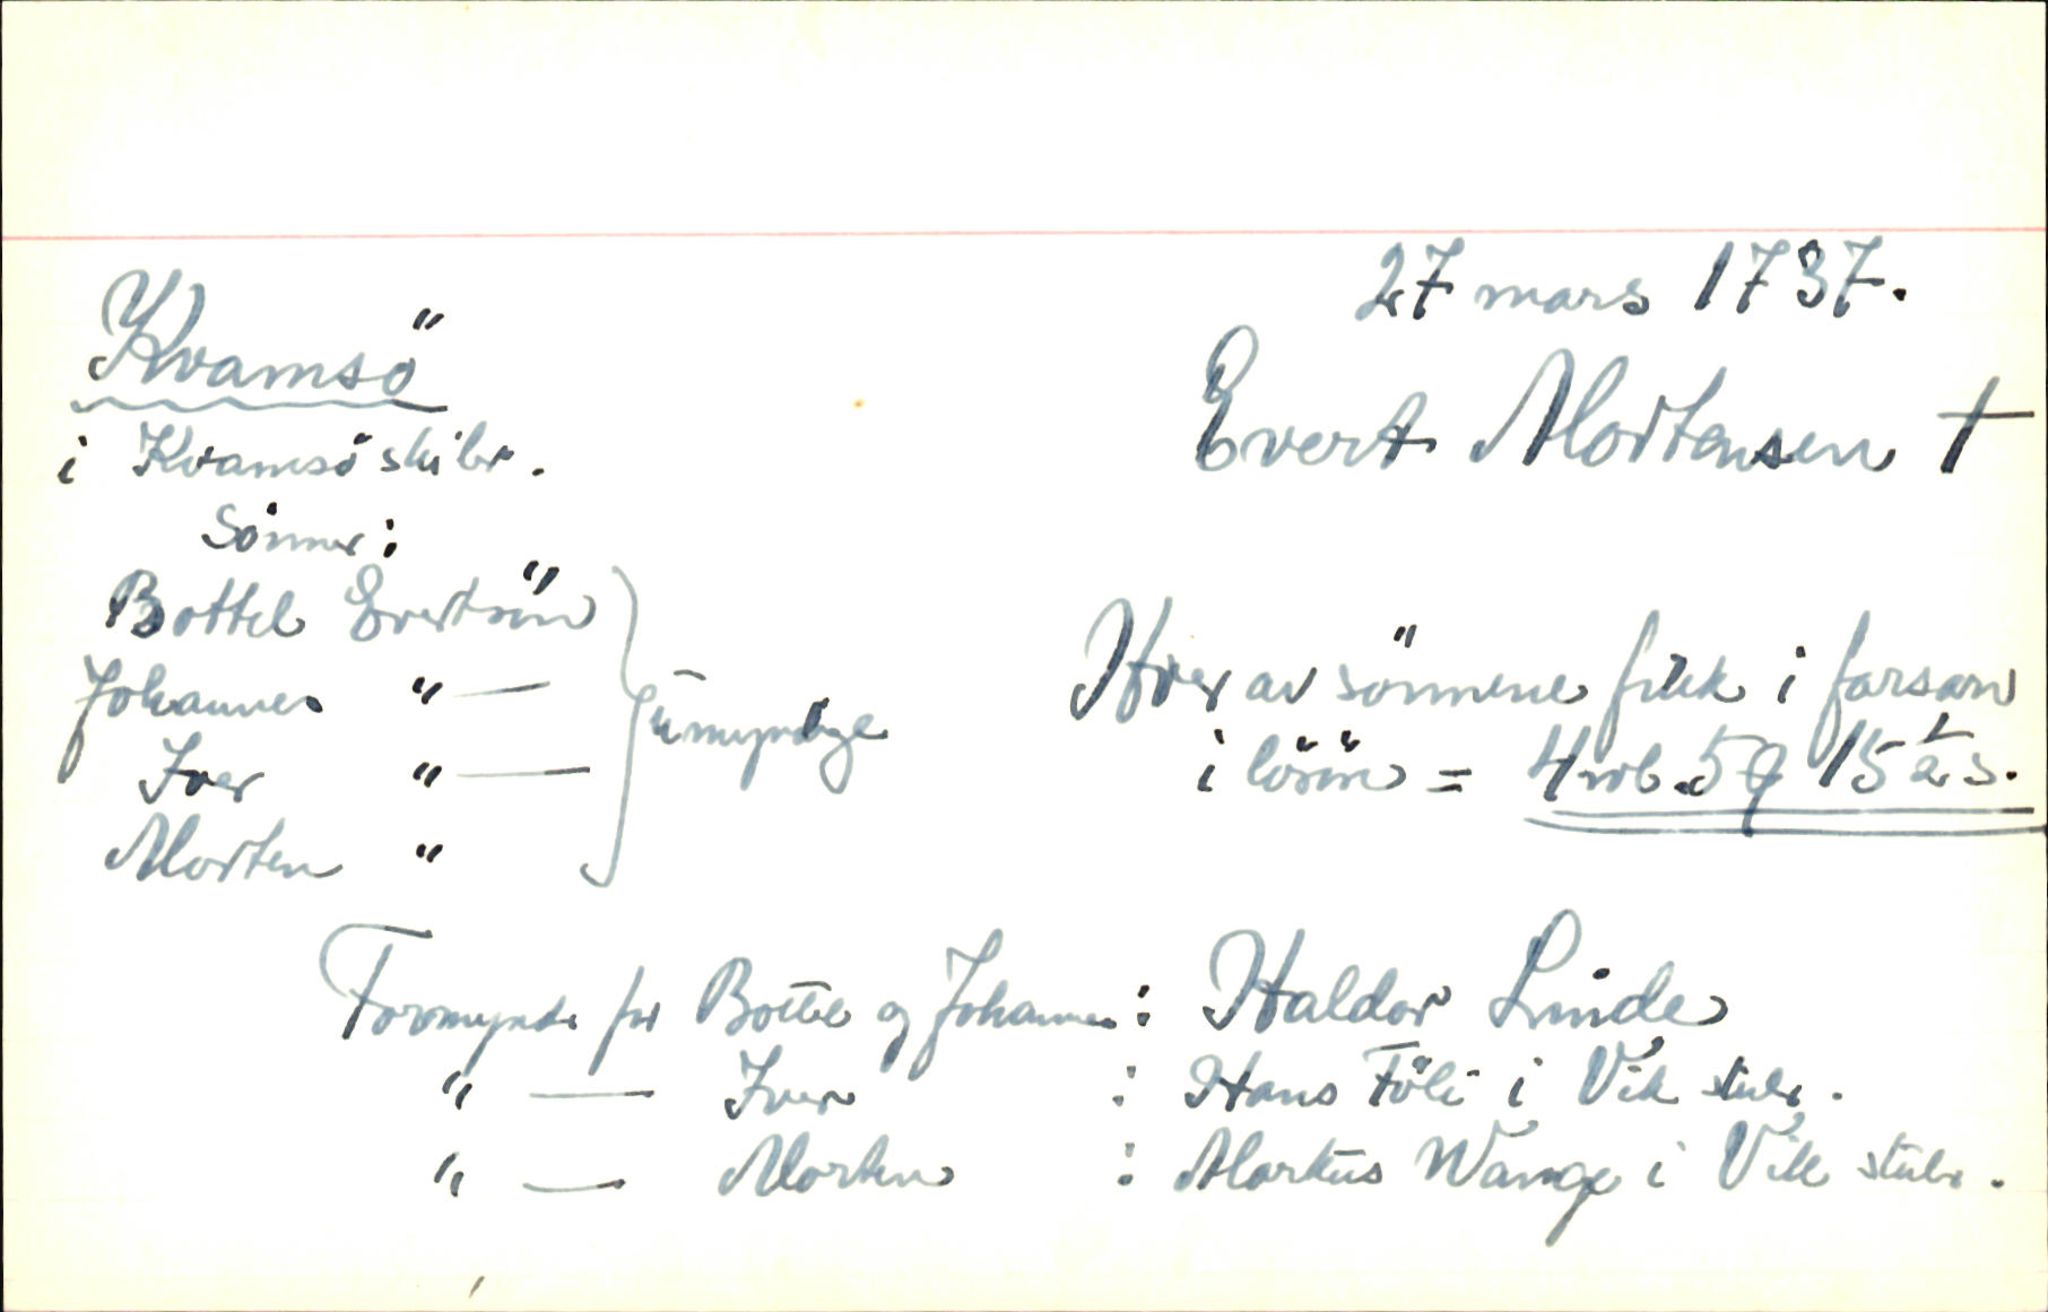 27 mars 1737.
Kvamsö
Evert Mortensen †
i Kvamsö skibr.
Sönner:
Bottel Evertsön
Johannes " —
Iver " —
Morten "
umyndige
Hver av sönnene fikk i farsarv
i lösöre = 4 rb. 5 q 15 1/2 s.
Formynder for Bottel og Johannes: Haldor Linde
" — Iver : Hans Föli i Vik skibr.
" — Morten : Markus Wange i Vik skibr.